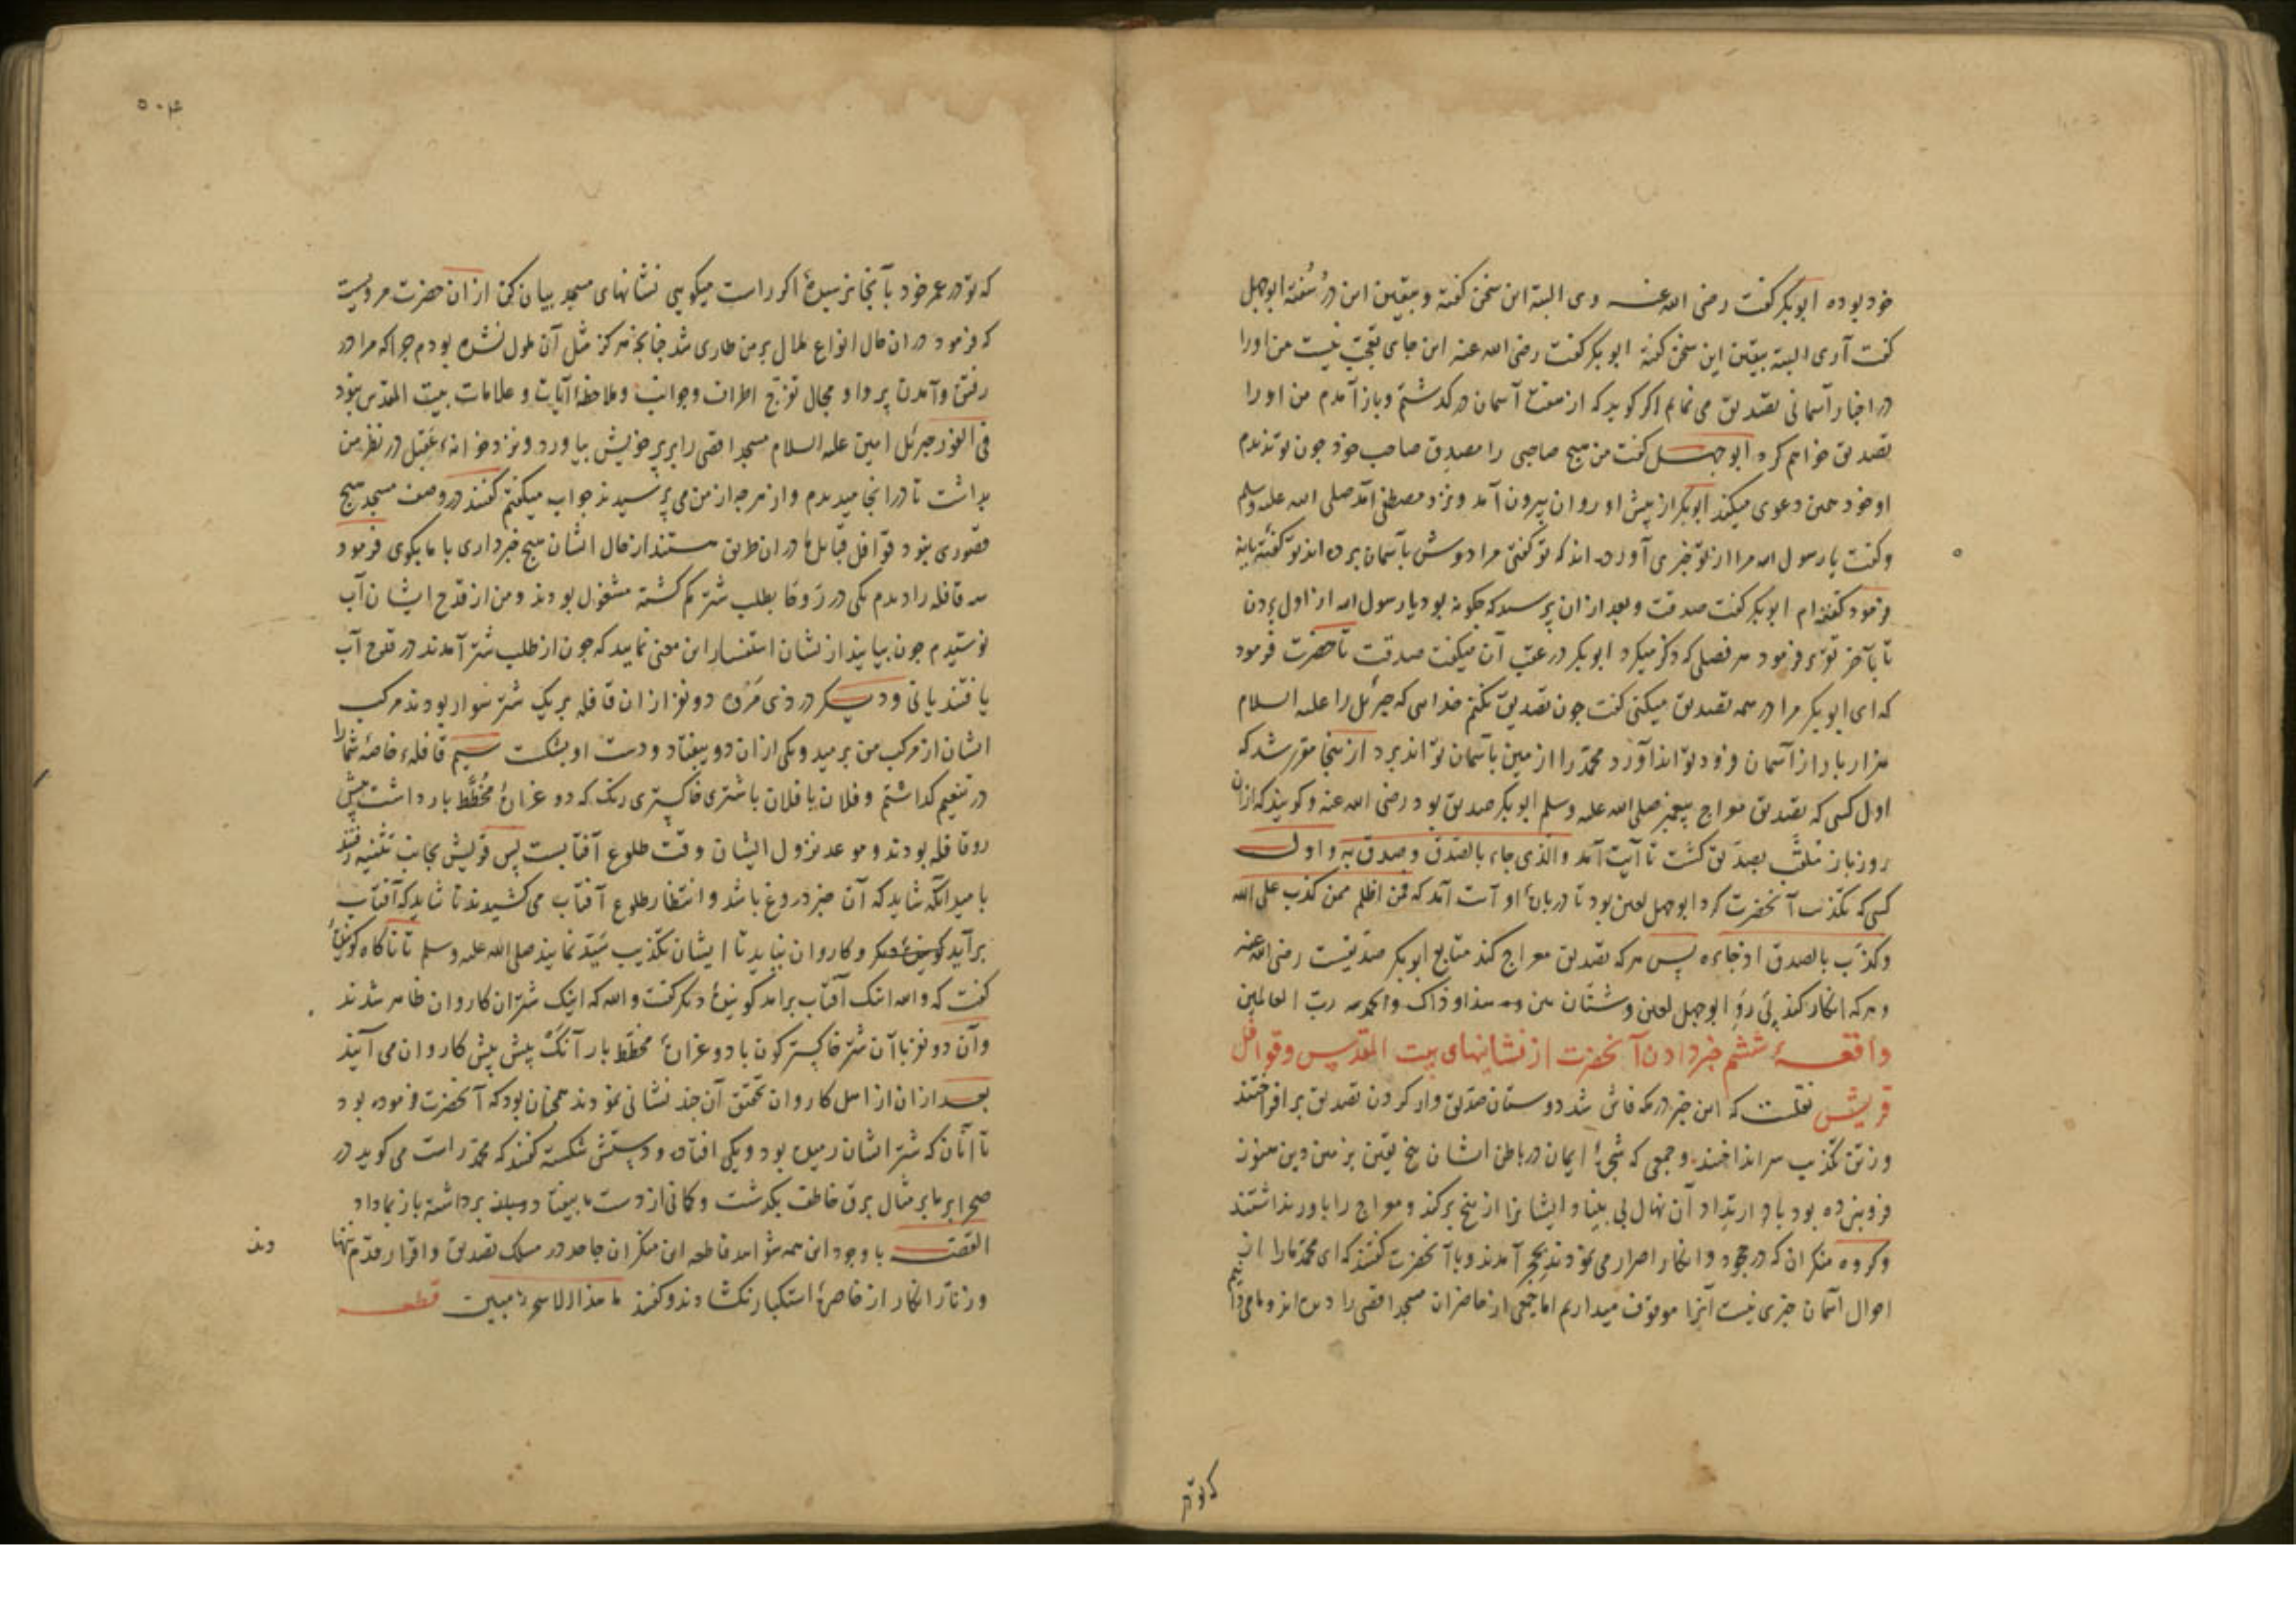 خود بوده ابوبکر گفت رضی الله عنه وی البته این سخن گفته و بیقین این در سفته ابوجهل
گفت آری البته بیقین این سخن گفته ابوبکر گفت رضی الله عنه این جای تعجب نیست من او را
در اخبار آسمانی تصدیق می نمایم اگر گوید که از هفت آسمان در گذشتم و باز آمدم من او را
تصدیق خواهم کرد ابوجهل گفت من هیچ صاحبی را مصدق صاحب خود چون تو ندیدم
او خود همین دعوی میکند ابوبکر از پیش او روان بیرون آمد و نزد مصطفی آمد صلی الله علیه وسلم
و گفت یا رسول الله مرا از تو خبری آورده اند که تو گفتی مرا دوش بآسمان برده اند تو گفتهٔ یا نه
فرمود گفته ام ابوبکر گفت صدقت و بعد از ان پرسید که چگونه بود یا رسول الله از اول بردن
تا بآخر تو فرمود هر فصلی که ذکر میکرد ابوبکر در عقب آن میگفت صدقت تا حضرت فرمود
که ای ابوبکر مرا در همه تصدیق میکنی گفت چون تصدیق نکنم خدایی که جبرئیل را علیه السلام
هزار بار از آسمان فرود تواند آورد محمد را از زمین بآسمان تواند برد از ینجا مقرر شد که
اول کسی که تصدیق معراج پیغمبر صلی الله علیه وسلم ابوبکر صدیق بود رضی الله عنه و گویند که ازان
روز باز ملقب بصدیق گشت تا آیت آمد والذی جاء بالصدق وصدق به و اول
کسی که تکذیب آنحضرت کرد ابوجهل لعین بود تا در باره او آیت آمد که فمن اظلم ممن کذب علی الله
وکذب بالصدق اذ جاءه پس هر که تصدیق معراج کند متابع ابوبکر صدیقست رضی الله عنه
و هر که انکار کند پی رو ابوجهل لعین و شتان بین هذا و ذاک والحمد لله رب العالمین
واقعهٔ ششم خبر دادن آنحضرت از نشانهای بیت المقدس و قوافل
قریش نقلست که این خبر در مکه فاش شد دوستان صدیق وار گردن تصدیق بر افراختند
و زتیغ تکذیب سر انداختند و جمعی که شجرهٔ ایمان در باطن ایشان بیخ یقین بزمین دین هنوز
فرو نبرده بود باد ارتداد آن نهال بی بنیاد ایشانرا از بیخ برکند و معراج را باور نداشتند
و گروه منکران که در جحود و انکار اصرار می نمودند بحجر آمدند و با آنحضرت گفتند که ای محمد ما را از
احوال آسمان خبری نیست آنرا موقوف میداریم اما جمعی از حاضران مسجد اقصی را دیده اند و ما می دانیم
که تو در
۵۰۴
که تو در عمر خود بآنجا نرسیدهٔ اگر راست میگویی نشانهای مسجد بیان کن ازان حضرت مرویست
که فرمود دران حال انواع ملال بر من طاری شد چنانچه هرگز مثل آن ملول نشده بودم چرا که مرا در
رفتن و آمدن پروا و مجال تفرج اطراف و جوانب و ملاحظهٔ آیات و علامات بیت المقدس نبود
فی الفور جبرئیل امین علیه السلام مسجد اقصی را بر پر خویش بیاورد و نزد خانهٔ عقیل در نظر من
بداشت تا درانجا میدیدم و از هر چه از من می پرسیدند جواب میگفتم گفتند در وصف مسجد هیچ
قصوری نبود قوافل قبایل ما دران طریق هستند از حال ایشان هیچ خبرداری با ما بگوی فرمود
سه قافله را دیدم یکی در روحا بطلب شتر گم گشته مشغول بودند و من از قدح ایشان آب
نوشیدم چون بیایند از نشان استفسار این معنی نمایید که چون از طلب شتر آمدند در قدح آب
یافتند یا نی و دیگر در ذی مره دو نفر ازان قافله بر یک شتر سوار بودند مرکب
ایشان از مرکب من برمید و یکی ازان دو بیفتاد و دست او بشکست سیم قافلهٔ خاصهٔ شما را
در تنعیم گذاشتم و فلان با فلان با شتری خاکستری رنگ که دو غرارهٔ مخطط بار داشت پیش
رو قافله بودند و موعد نزول ایشان وقت طلوع آفتابست پس قریش بجانب ثنیه رفتند
بامید آنکه شاید که آن خبر دروغ باشد و انتظار طلوع آفتاب می کشیدند تا شاید که آفتاب
برآید و کاروان نیاید تا ایشان تکذیب سید نمایند صلی الله علیه وسلم تا ناگاه گویندهٔ
گفت که والله اینک آفتاب برآمد گویندهٔ دیگر گفت والله که اینک شتران کاروان ظاهر شدند
و آن دو نفر با آن شتر خاکستر گون با دو غرارهٔ مخطط بار آنک پیش پیش کاروان می آیند
بعد ازان از اهل کاروان تحقیق آن چند نشانی نمودند همچنان بود که آنحضرت فرموده بود
تا آنان که شتر ایشان رمیده بود و یکی افتاده و دستش شکسته گفتند که محمد راست می گوید در
صحرا بر ما بر مثال برق خاطف بگذشت و کمانی از دست ما بیفتاد برداشته باز بما داد
القصه با وجود این همه شواهد قاطعه این منکران جاحد در مسلک تصدیق و اقرار قدم ننها
دند
و زنار انکار از خاصرهٔ استکبار نگشادند و گفتند ما هذا الا سحر مبین قطعه